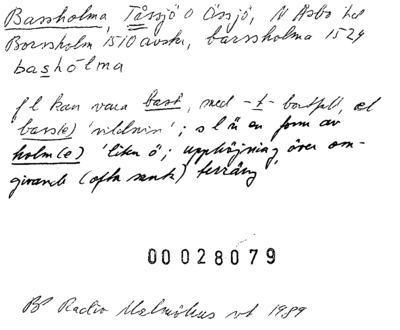 Bassholma, Tåssjö o Össjö, N Åsbo hd
Borssholm 1510 avskr, barssholma 1524
bashólma
fl kan vara bast, med -t- bortfall, el
bars(e) 'vildsvin'; sl är en form av
holm(e) 'liten ö; upphöjning över om-
givande (ofta sank) terräng
00028079
BP Radio Malmöhus vt 1989